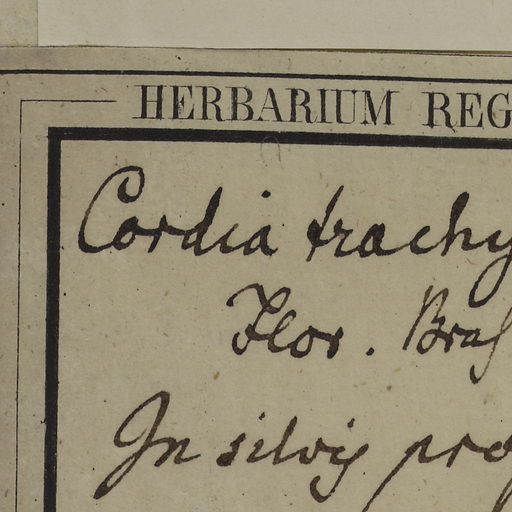 HERBARIUM REG
Cordia trachy
Flor. Bras
In silvis pro